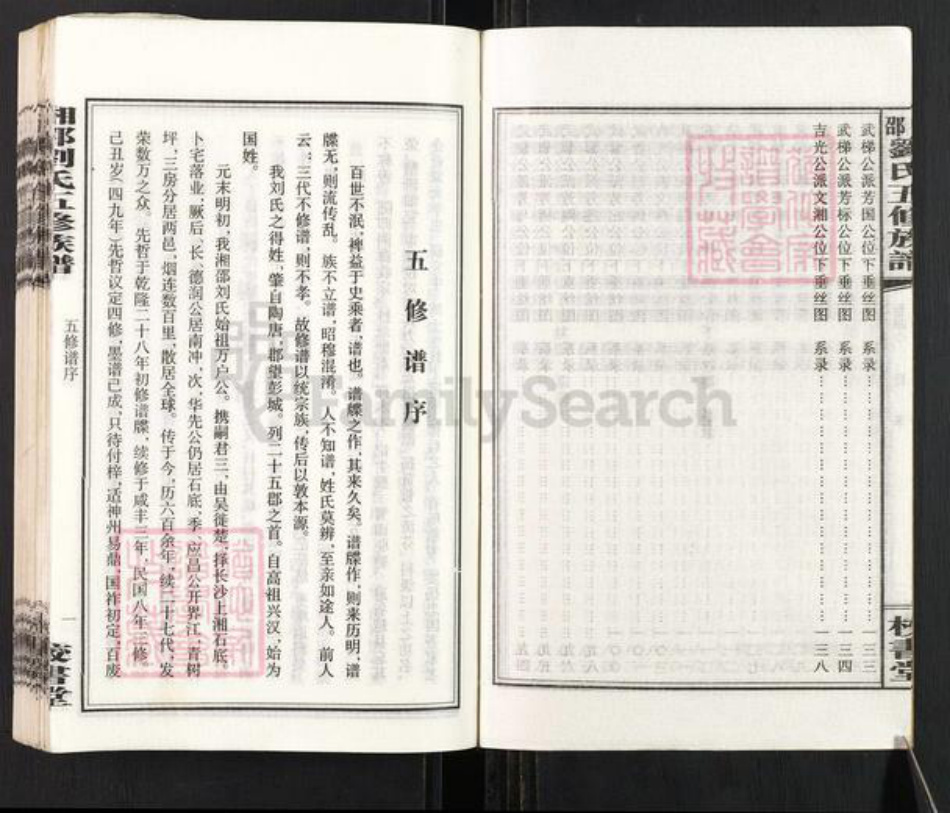 劉氏五修族譜
武梯公派芳国公位下垂丝图 系录……………一三三
武梯公派芳标公位下垂丝图 系录……………一三四
吉光公派文湘公位下垂丝图 系录……………一三八
校書堂
五修谱序
百世不泯，裨益于史乘者，谱也。谱牒之作，其来久矣。谱牒作，则来历明，谱
牒无，则流传乱。族不立谱，昭穆混淆。人不知谱，姓氏莫辨，至亲如途人。前人
云：三代不修谱，则不孝。故修谱以统宗族，传后以敦本源。
我刘氏之得姓，肇自陶唐，郡望彭城。列二十五郡之首。自高祖兴汉，始为
国姓。
元末明初，我湘邵刘氏始祖万户公。携嗣君三，由吴徙楚，择长沙上湘石底，
卜宅落业，厥后，长、德润公居南冲，次、华先公仍居石底，季、应昌公开界江，青树
坪，三房分居两邑，烟连数百里，散居全球。传于今，历六百余年，续二十七代，发
荣数万之众。先哲于乾隆二十八年初修谱牒，续修于咸丰三年，民国八年三修，
己丑岁(四九年)先哲议定四修，墨谱已成，只待付梓，适神州易鼎，国祚初定，百废
湘邵刘氏五修族谱
五修谱序
一
校書堂
FamilySearch